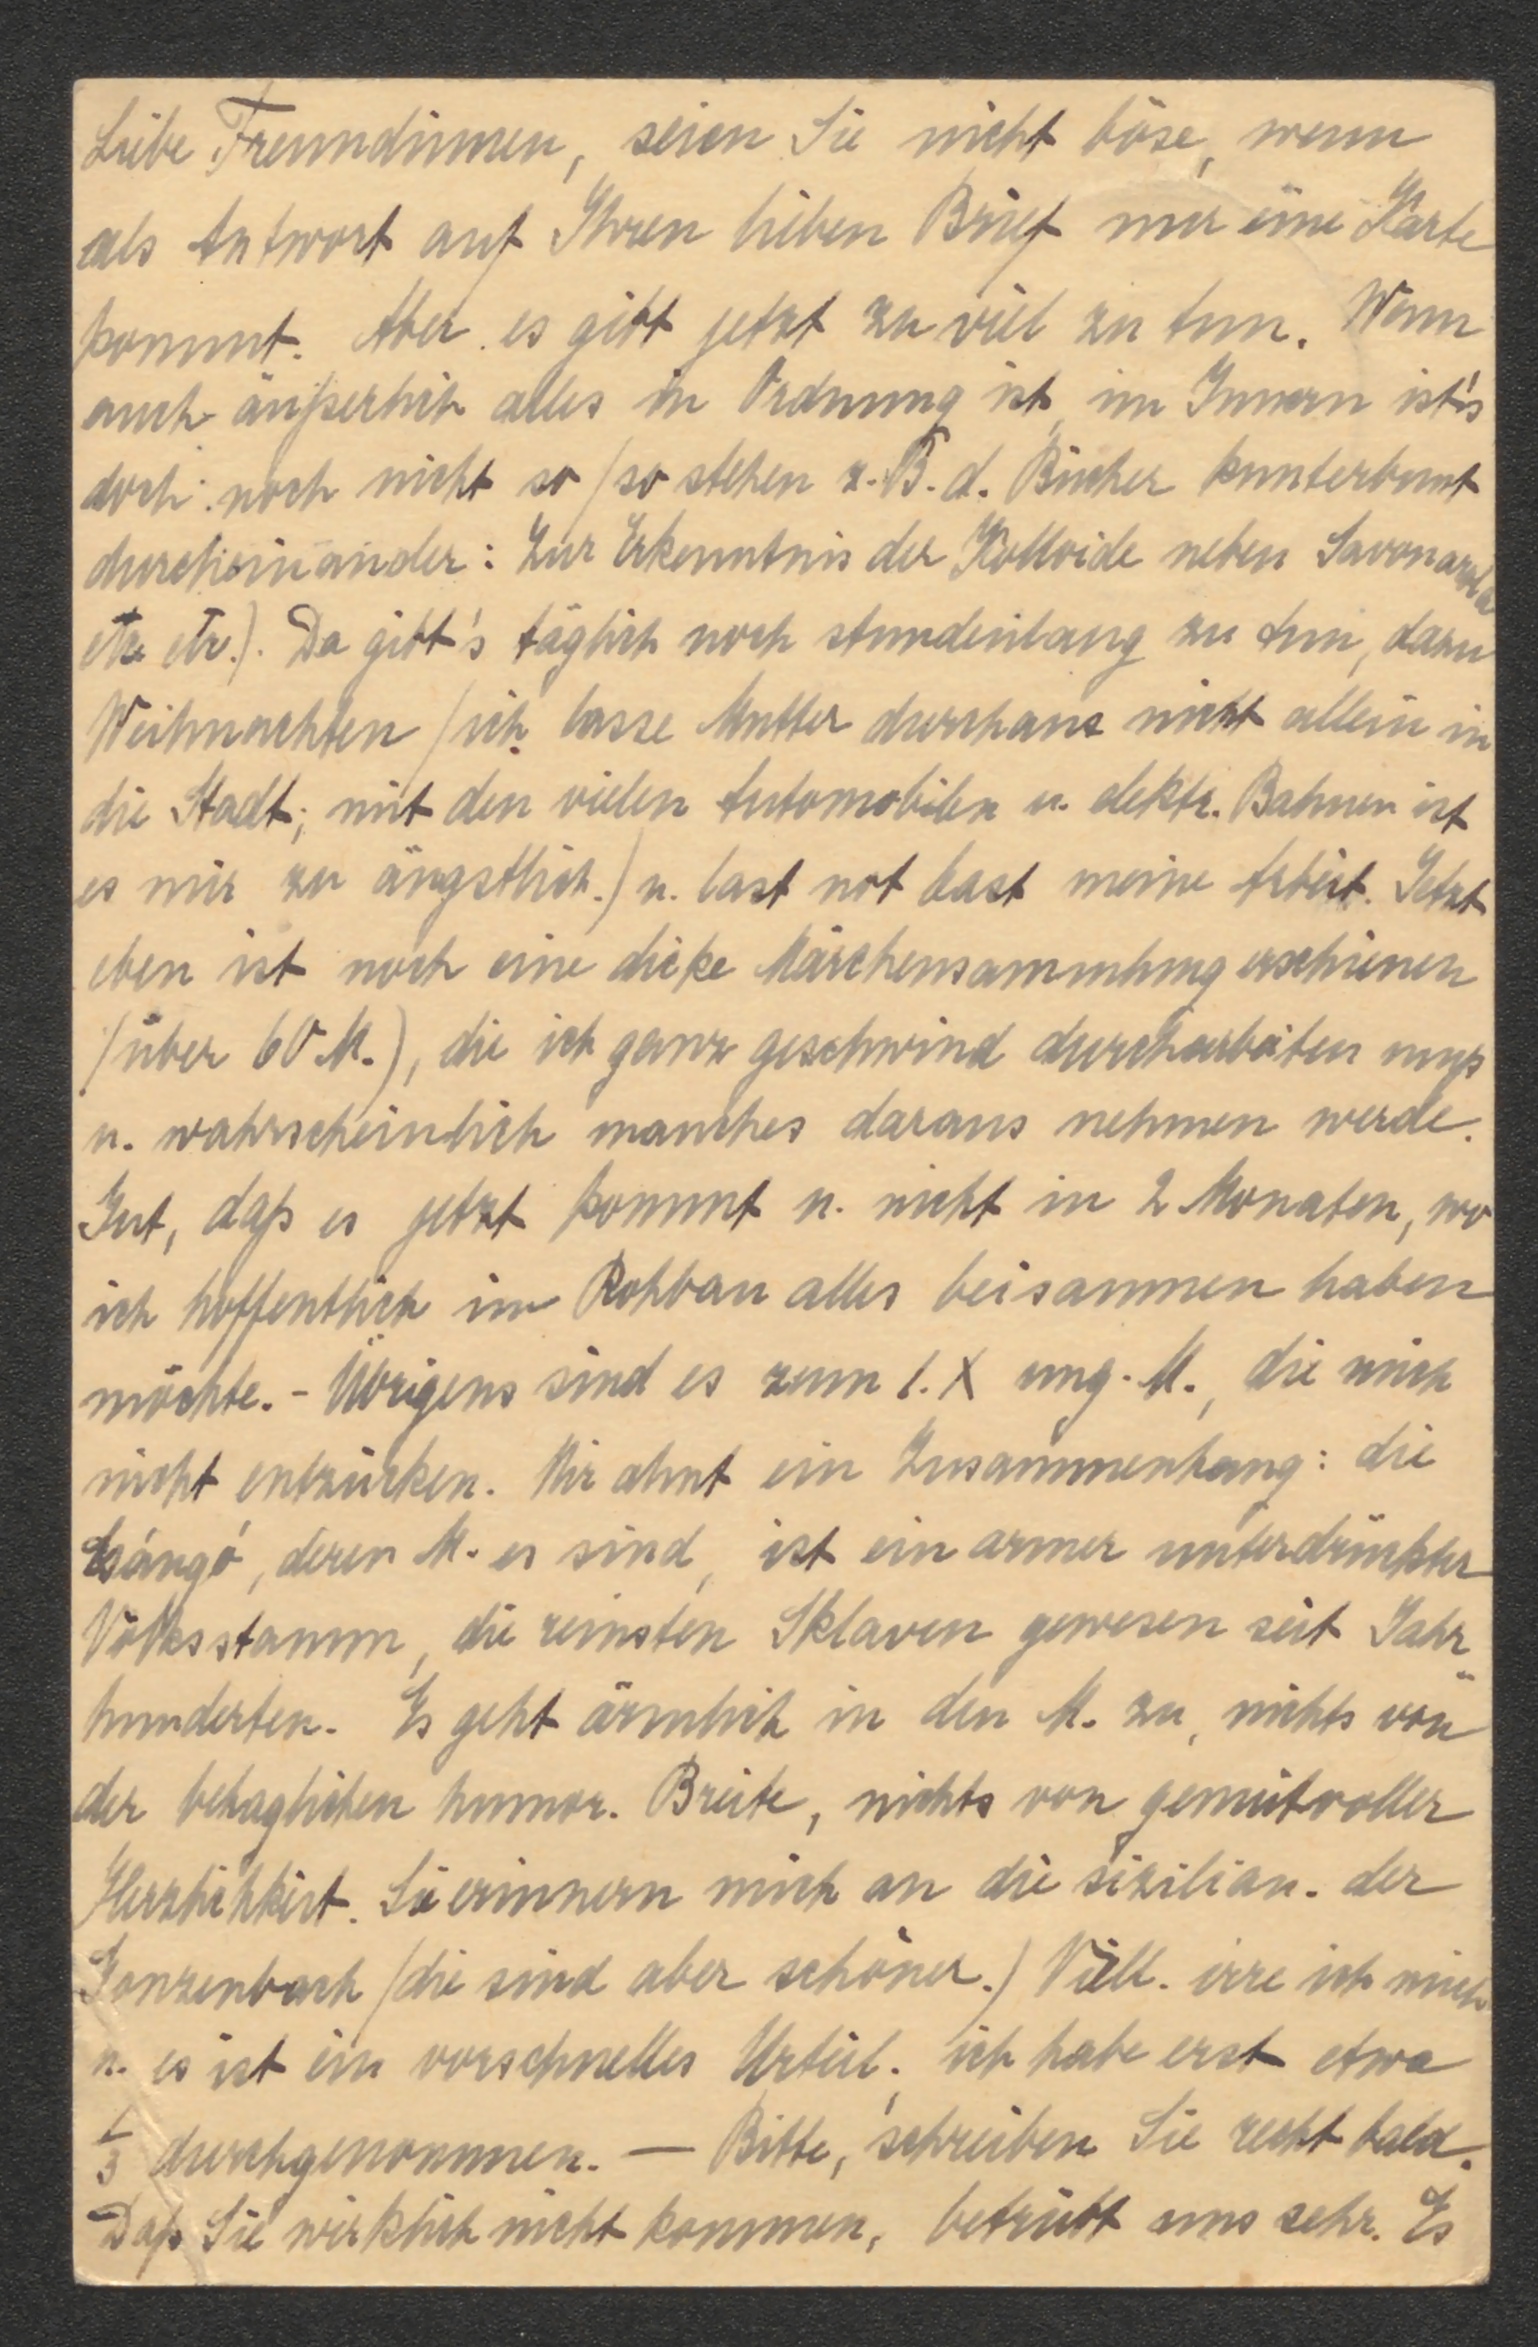 Liebe Freundinnen, seien Sie nicht böse, wenn
als Antwort auf Ihren lieben Brief nur eine Karte
kommt. Aber es gibt jetzt zu viel zu tun. Wenn
auch äußerlich alles in Ordnung ist, im Innern ist's
doch noch nicht so (so stehen z. B. d. Bücher kunterbunt
durcheinander: Zur Erkenntnis der Kolloide neben Savonarola
etc etc.). Da gibt's täglich noch stundenlang zu tun, dazu
Weihnachten (ich lasse Mutter durchaus nicht allein in
die Stadt; mit den vielen Automobilen u. elektr. Bahnen ist
es mir zu ängstlich.) u. last not least meine Arbeit. Jetzt
eben ist noch eine dicke Märchensammlung erschienen
(über 60 M.), die ich ganz geschwind durcharbeiten muß
u. wahrscheinlich manches daraus nehmen werde.
Gut, daß es jetzt kommt u. nicht in 2 Monaten, wo
ich hoffentlich im Rohbau alles beisammen haben
möchte. - Übrigens sind es zum 1. X ung. M., die mich
nicht entzücken. Mir ahnt ein Zusammenhang: die
Csángó, deren M. es sind, ist ein armer unterdrückter
Volksstamm, die reinsten Sklaven gewesen seit Jahr-
hunderten. Es geht ärmlich in den M. zu, nichts von
der behaglichen humor. Breite, nichts von gemütvoller
Herzlichkeit. Sie erinnern mich an die sizilian. der
Gonzenbach (die sind aber schöner.) Viell. irre ich mich
u. es ist ein vorschnelles Urteil; ich habe erst etwa
1/3 durchgenommen. — Bitte, schreiben Sie recht bald.
Daß Sie wirklich nicht kommen, betrübt uns sehr. Es